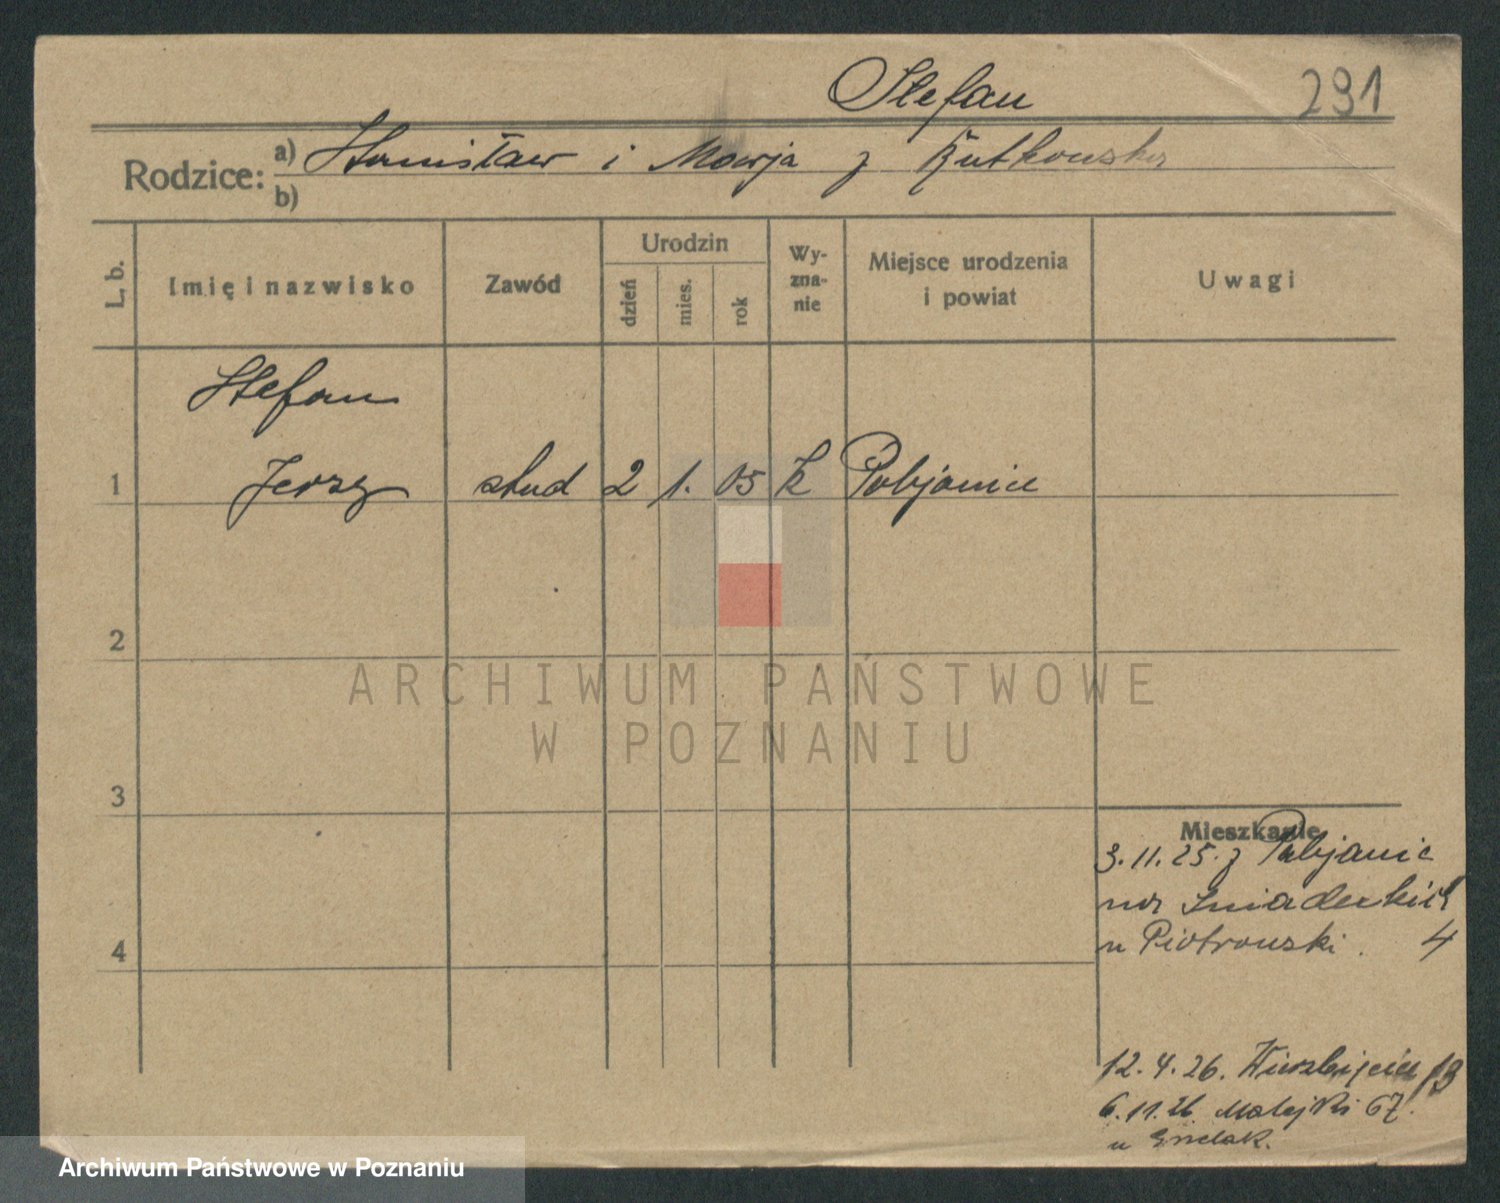 Stefan
291
Rodzice: a) Stanisław i Marja z Rutkowska
b)
L. b.
Imię i nazwisko
Zawód
Urodzin
dzień
mies.
rok
Wy-
zna-
nie
Miejsce urodzenia
i powiat
Uwagi
Stefan
1 Jerzy stud 2 1. 05 k Pabjanice
2
3
4
Mieszkanie
3.11.25. z Pabjanic
na Śniadeckich
u Piotrowski. 4
12.4.26. Wierzbięcice 13
6.11.26 Matejki 67.
u
ARCHIWUM PAŃSTWOWE
W POZNANIU
Archiwum Państwowe w Poznaniu